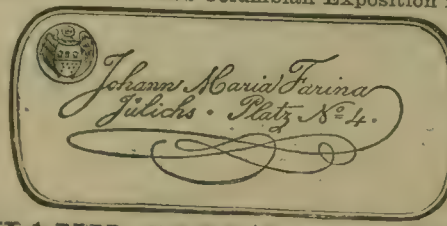 Exposition
Johann Maria Farina
Jülichs · Platz No 4.